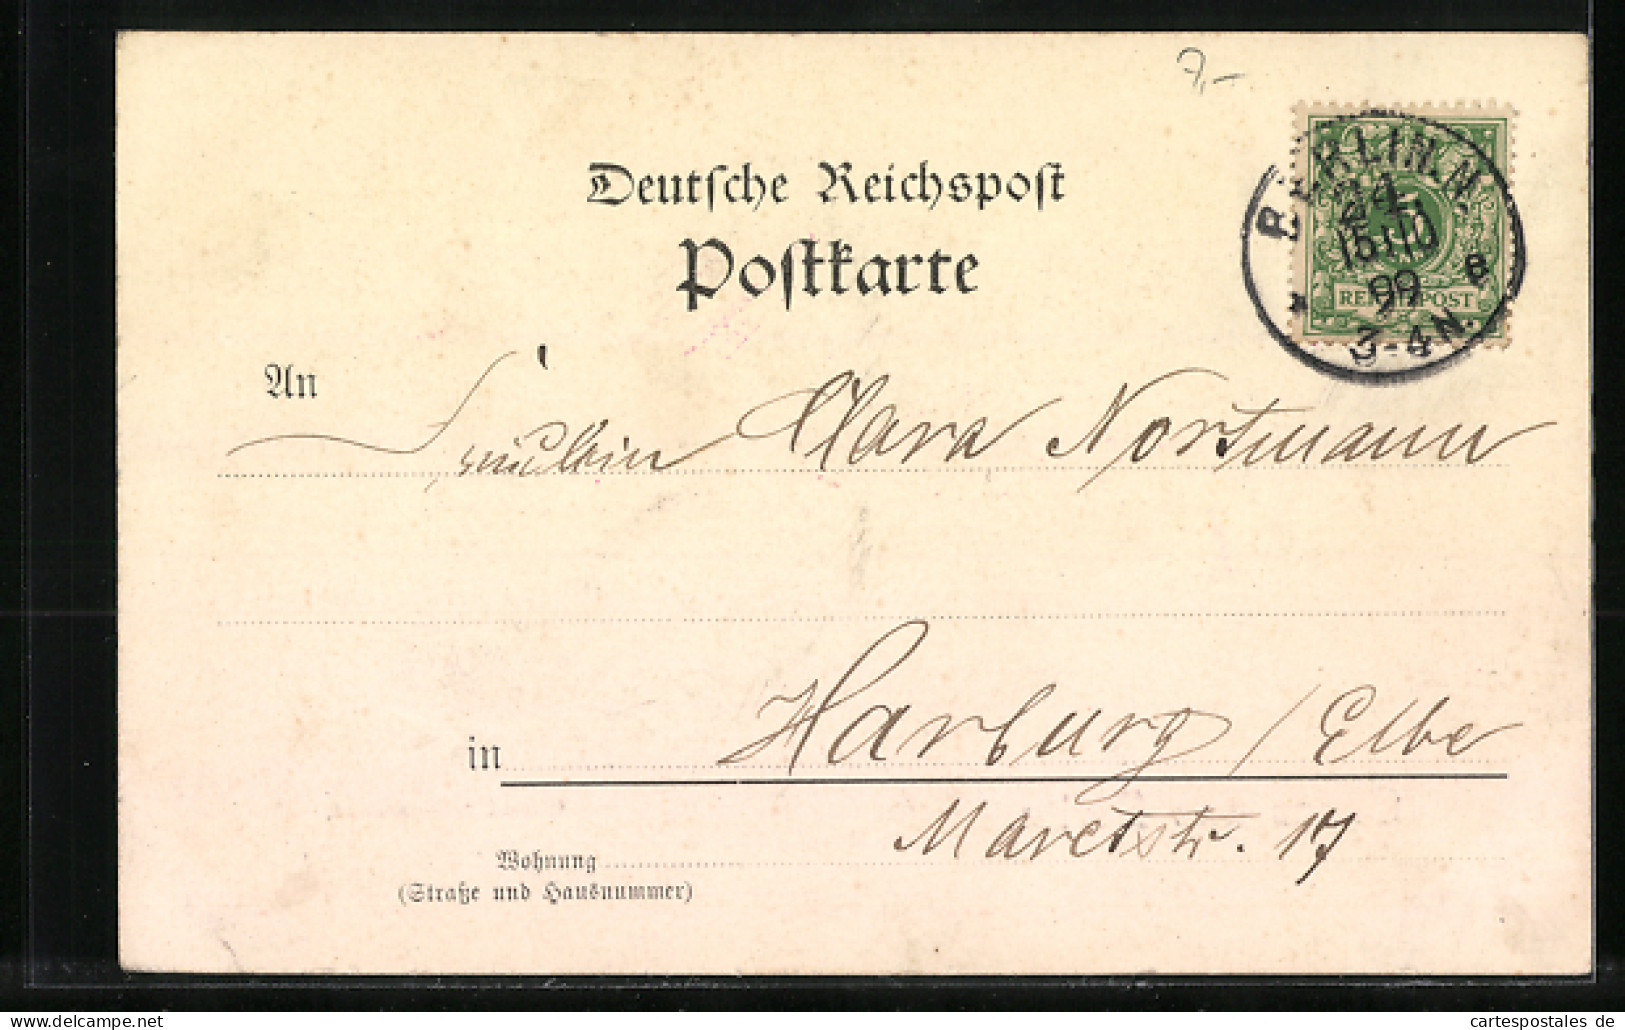 7,-
Deutsche Reichspost
Postkarte
BERLIN.N.
24
15.10
99
* B
3-4N.
REICHSPOST
An Fräulein Clara Nortmann
in Harburg / Elbe
Maretstr. 17
Wohnung
(Straße und Hausnummer)
www.delcampe.net
cartespostales de